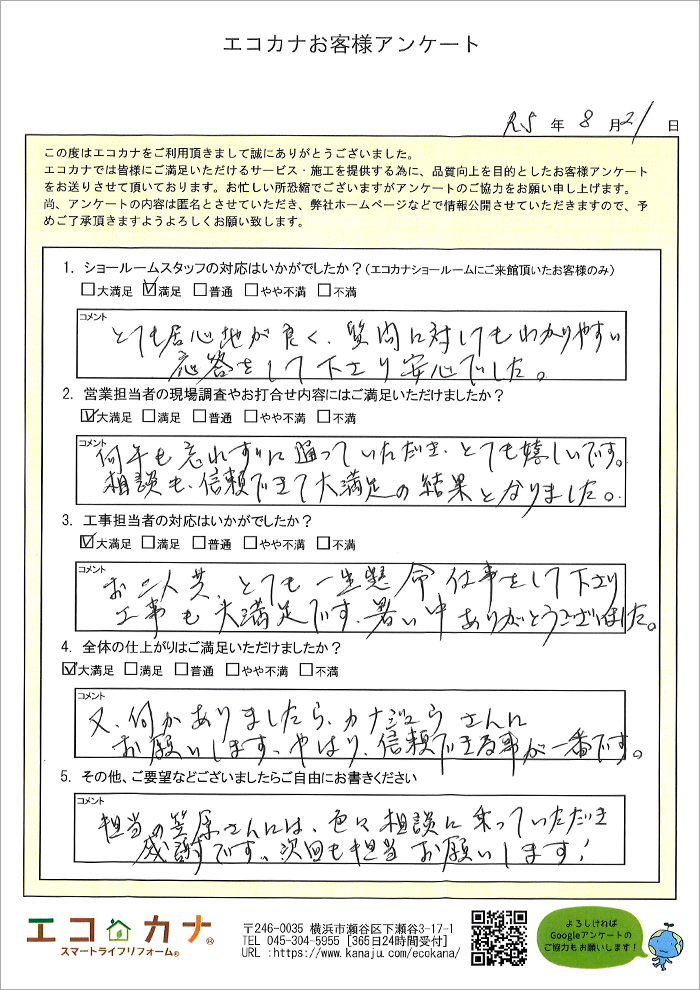 エコカナお客様アンケート
R5 年 8 月 21 日
この度はエコカナをご利用頂きまして誠にありがとうございました。
エコカナでは皆様にご満足いただけるサービス・施工を提供する為に、品質向上を目的としたお客様アンケート
をお送りさせて頂いております。お忙しい所恐縮でございますがアンケートのご協力をお願い申し上げます。
尚、アンケートの内容は匿名とさせていただき、弊社ホームページなどで情報公開させていただきますので、予
めご了承頂きますようよろしくお願い致します。
1. ショールームスタッフの対応はいかがでしたか？(エコカナショールームにご来館頂いたお客様のみ)
□大満足 ☑満足 □普通 □やや不満 □不満
コメント
とても居心地が良く、質問に対してもわかりやすい
応答をして下さり安心でした。
2. 営業担当者の現場調査やお打合せ内容にはご満足いただけましたか？
☑大満足 □満足 □普通 □やや不満 □不満
コメント
何年も忘れずに通っていただき、とても嬉しいです。
相談も、信頼できて大満足の結果となりました。
3. 工事担当者の対応はいかがでしたか？
☑大満足 □満足 □普通 □やや不満 □不満
コメント
お二人共、とても一生懸命仕事をして下さり
工事も大満足です。暑い中ありがとうございました。
4. 全体の仕上がりはご満足いただけましたか？
☑大満足 □満足 □普通 □やや不満 □不満
コメント
又、何かありましたら、カナジュウさんに
お願いします。やはり、信頼できる事が一番です。
5. その他、ご要望などございましたらご自由にお書きください
コメント
担当の笠原さんには、色々相談に乗っていただき
感謝です。次回も担当お願いします！
エコカナ®
スマートライフリフォーム®
〒246-0035 横浜市瀬谷区下瀬谷3-17-1
TEL 045-304-5955 [365日24時間受付]
URL :https://www.kanaju.com/ecokana/
よろしければ
Googleアンケートの
ご協力もお願いします！